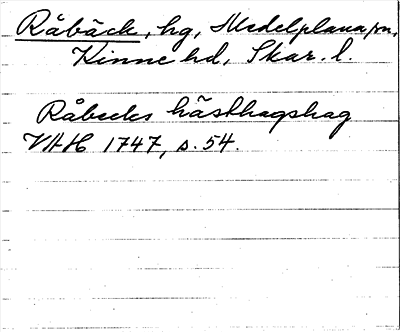 Råbäck, hg, Medelplana sn,
Kinne hd, Skar. l.
Råbecks hästhagshag
VAH 1747, s. 54.